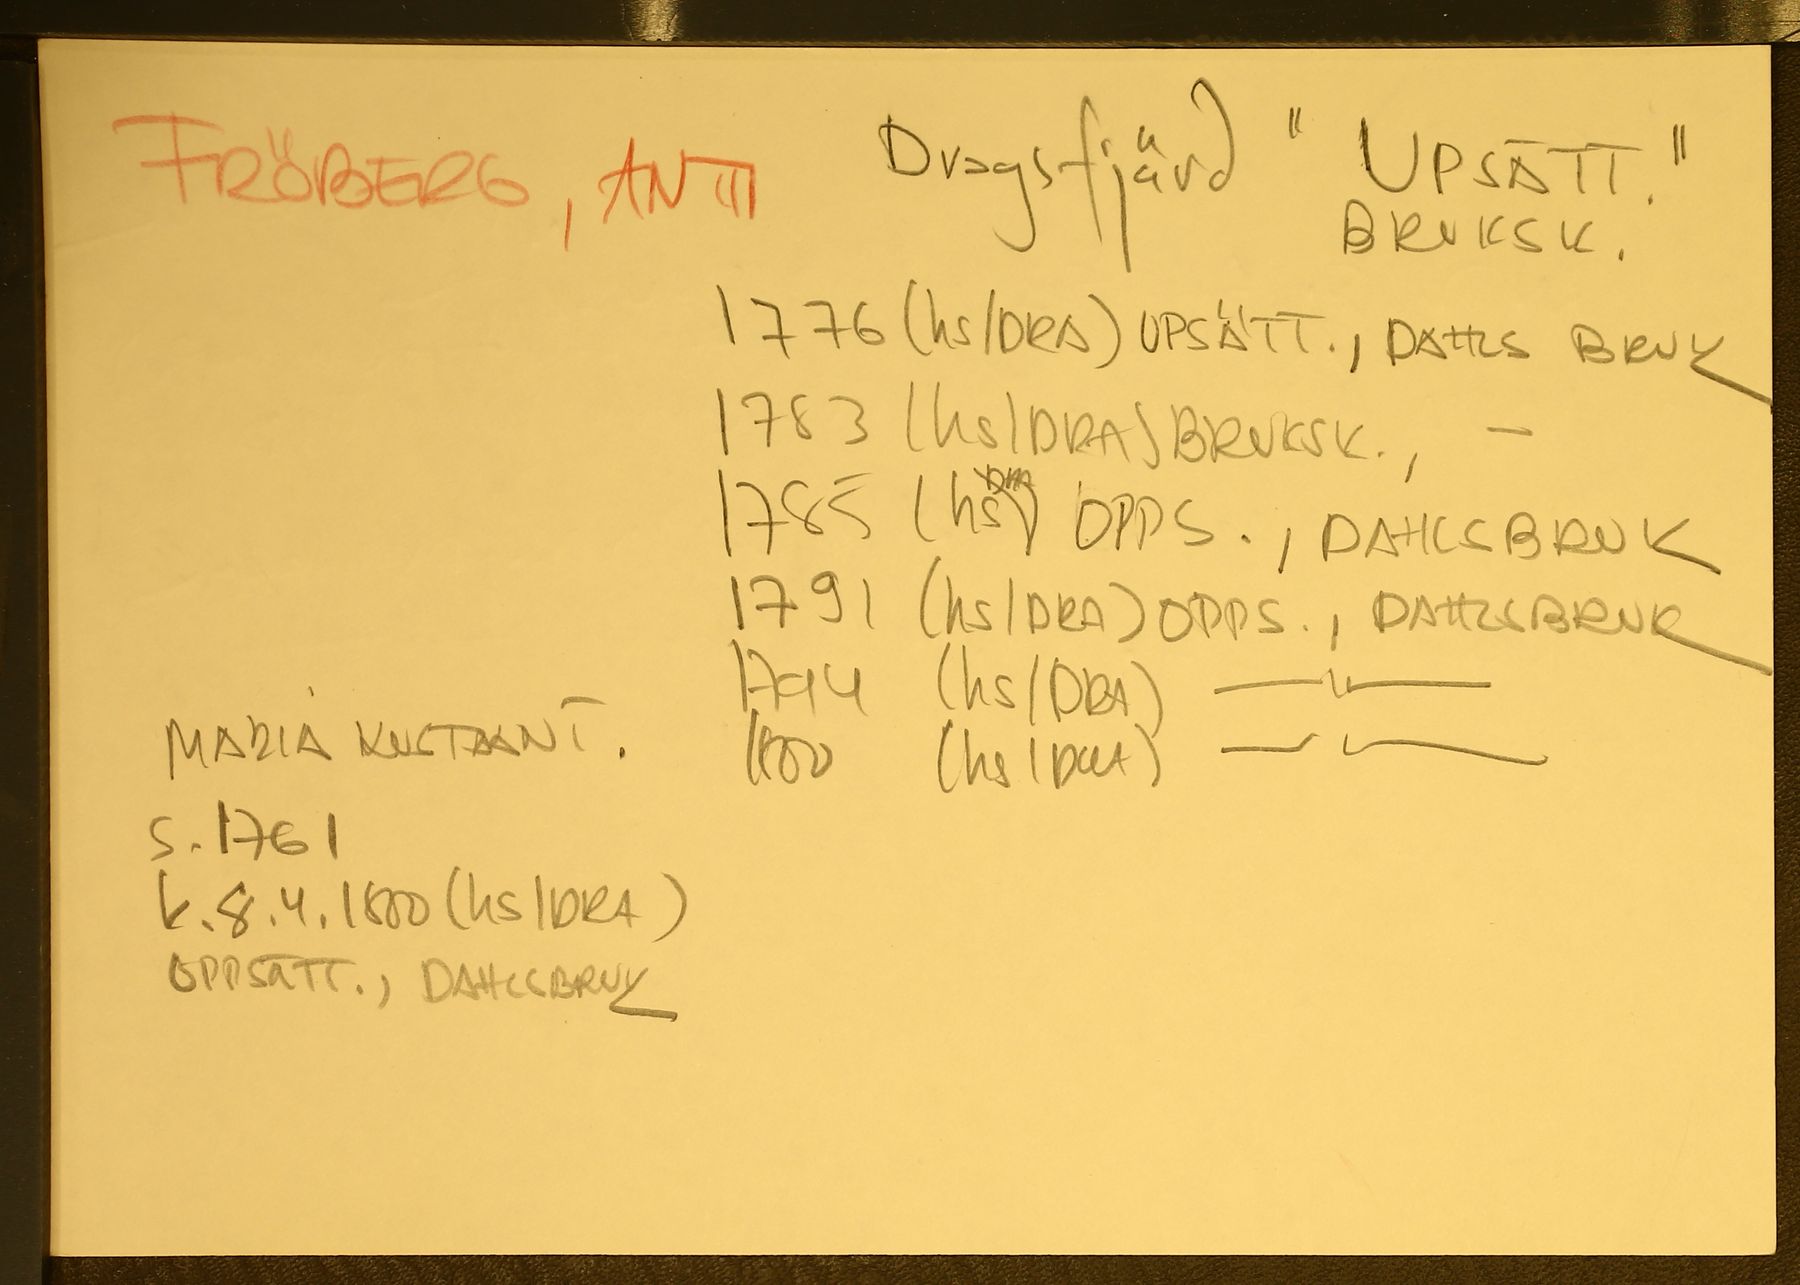 FRÖBERG, ANTTI
Dragsfjärd "UPSÄTT."
BRUKSK.
1776 (hs/DRA) UPSÄTT., DAHLS BRUK
1783 (hs/DRA) BRUKSK., —
1785 (hs/DRA) OPPS., DAHLSBRUK
1791 (hs/DRA) OPPS., DAHLSBRUK
1794 (hs/DRA) —"—
1800 (hs/DRA) —"—
MARIA KUSTAANT.
s. 1761
k. 8.4.1800 (hs/DRA)
OPPSÄTT., DAHLSBRUK